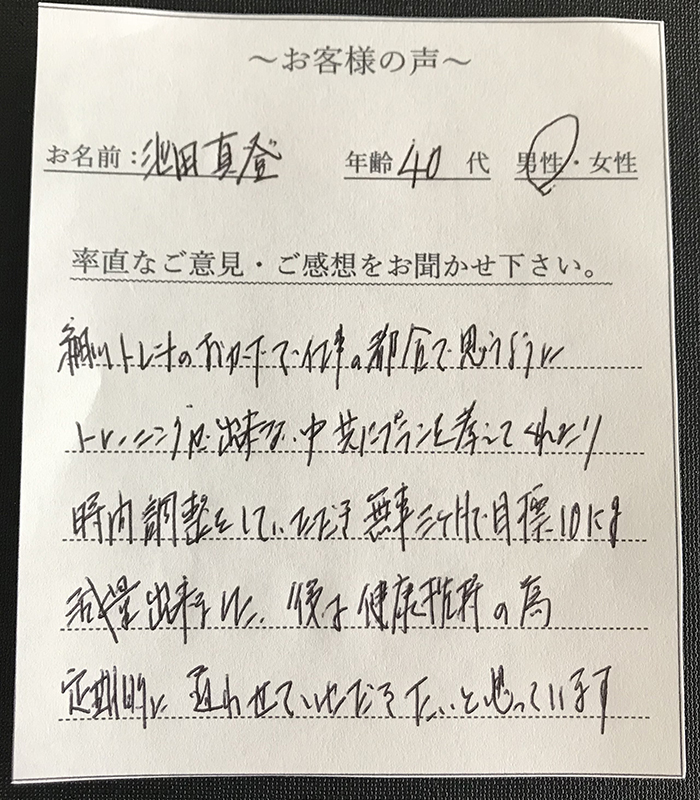 ～お客様の声～
お名前：池田真登 年齢 40 代 男性・女性
率直なご意見・ご感想をお聞かせ下さい。
細川トレーナーのおかげで仕事の都合で思うように
トレーニングが出来ない中共にプランを考えてくれたり
時間調整をしていただき無事三ヶ月で目標10kg
減量出来ました、後は健康維持の為
定期的に通わせていただきたいと思っています